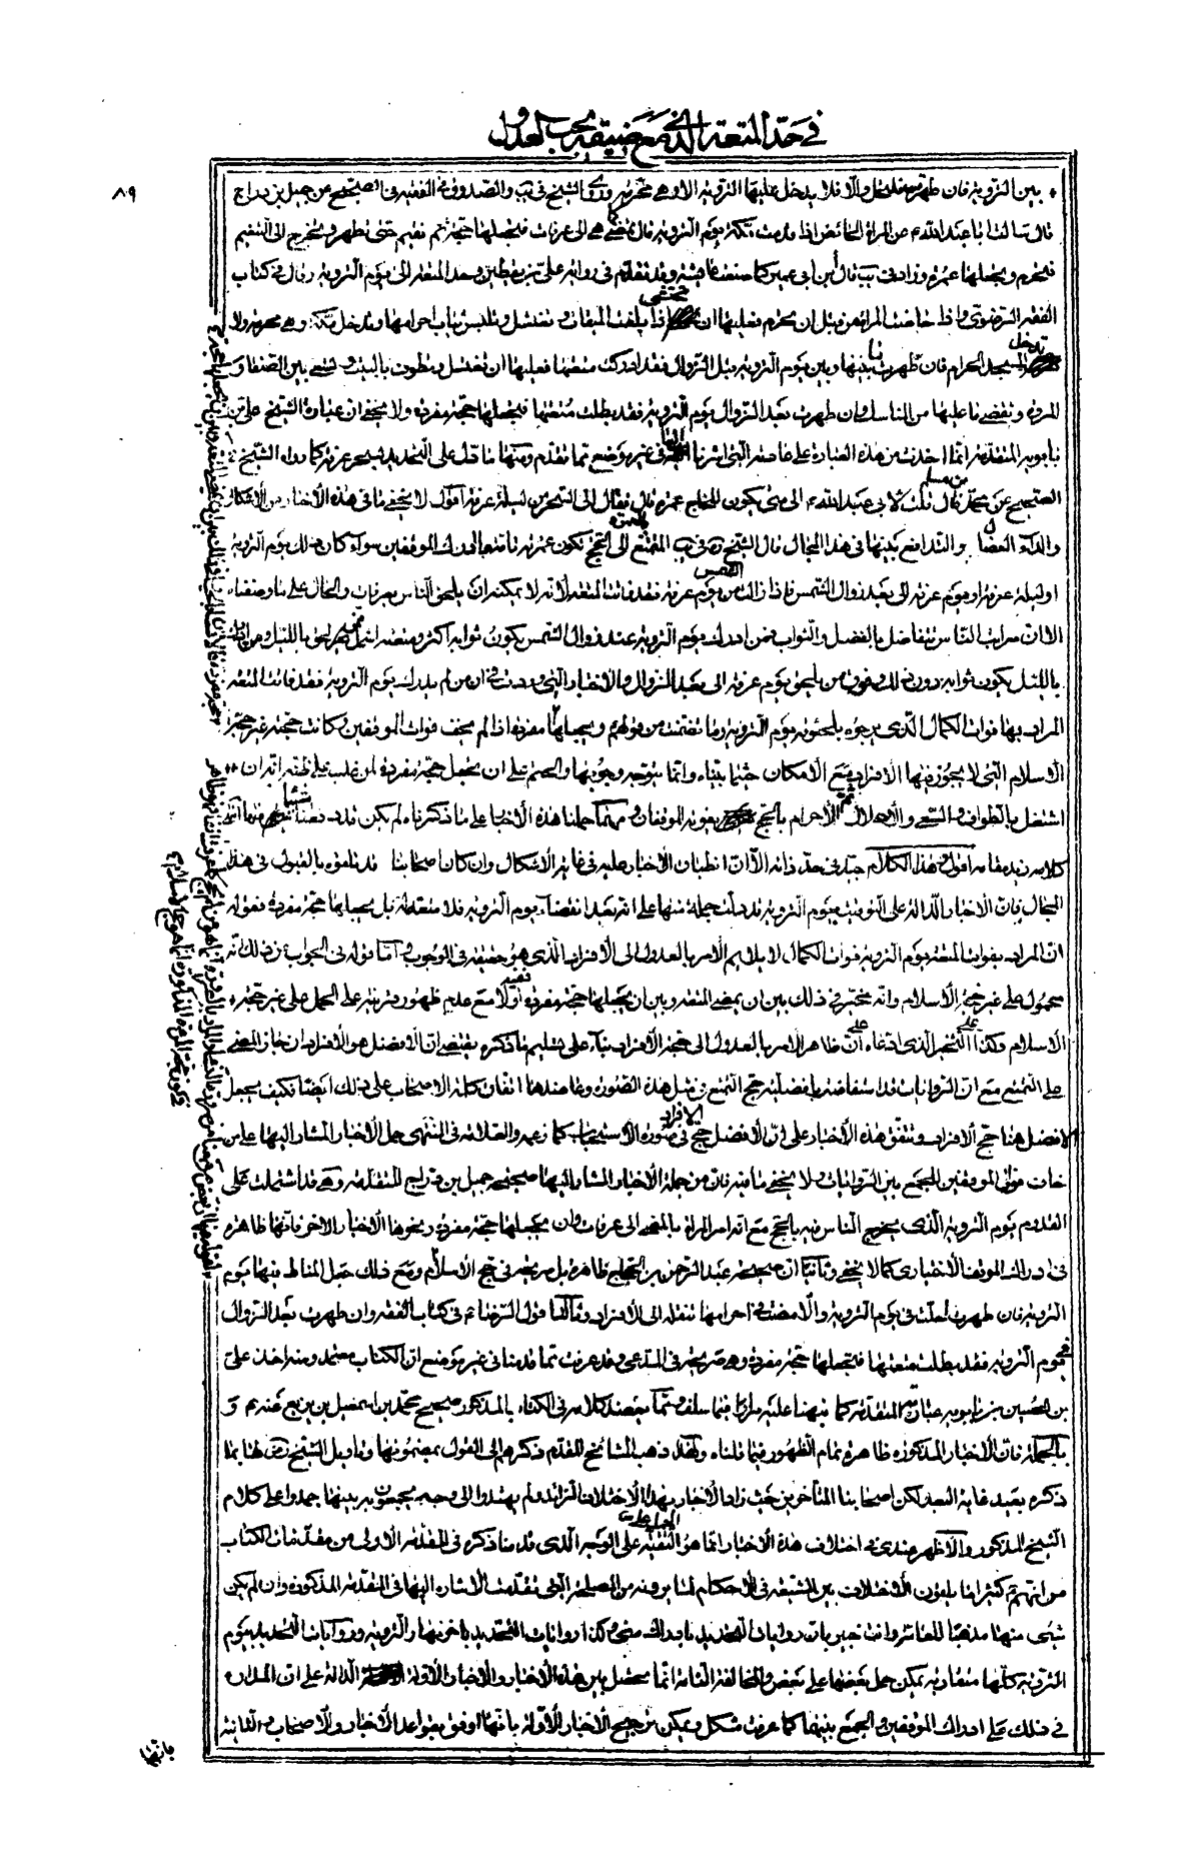 في حد المتعة الذي مع ضيقه يجب العدول
٨٩
بين التروية فان طهرت فلتحل والا فلا يدخل عليها التروية الا وهي محرمة وروى الشيخ في يب والصدوق في الفقيه في الصحيح عن جميل بن دراج
قال سالت ابا عبد الله ع عن المراة الحائض اذا قدمت مكة يوم التروية قال تمضي كما هي الى عرفات فتجعلها حجة ثم تقيم حتى تطهر وتخرج الى التنعيم
فتحرم وتجعلها عمرة وزاد في يب قال ابن ابي عمير كما صنعت عايشة وقد تقدم في رواية علي بن يقطين وحد المتعة الى يوم التروية وقال في كتاب
الفقه الرضوي واذا حاضت المراة من قبل ان تحرم فعليها ان تحتشي اذا بلغت الميقات وتغتسل وتلبس ثياب احرامها وتدخل مكة وهي محرمة ولا
تدخل المسجد الحرام فان طهرت ما بينها وبين يوم التروية قبل الزوال فقد ادركت متعتها فعليها ان تغتسل وتطوف بالبيت وتسعى بين الصفا و
المروة وتقضي ما عليها من المناسك وان طهرت بعد الزوال يوم التروية فقد بطلت متعتها فتجعلها حجة مفردة ولا يخفى ان عبارة الشيخ علي بن
بابويه المتقدمة انما اخذت من هذه العبارة على القاعدة التي اشرنا اليها في غير موضع مما تقدم ومنها ما دل على التحديد بسحر عرفة كما رواه الشيخ في
الصحيح عن محمد بن مسلم قال قلت لابي عبد الله ع الى متى يكون للحاج عمرة قال فقال الى السحر من ليلة عرفة اقول لا يخفى ما في هذه الاخبار من الاشكال
والداء العضال والتدافع بينها في هذا المجال قال الشيخ ره في يب المتمتع بالعمرة الى الحج تكون عمرته تامة ما ادرك الموقفين سواء كان ذلك يوم التروية
او ليلة عرفة او يوم عرفة الى بعد زوال الشمس فاذا زالت الشمس من يوم عرفة فقد فاتت المتعة لانه لا يمكنه ان يلحق الناس بعرفات والحال على ما وصفناه
الا ان مراتب الناس تتفاضل بالفضل والثواب فمن ادرك يوم التروية عند زوال الشمس يكون ثوابه اكثر ومتعته اكمل ممن لحق بالليل ومن ادرك
بالليل يكون ثوابه دون ذلك وفوق من يلحق يوم عرفة الى بعد الزوال والاخبار التي وردت في ان من لم يدرك يوم التروية فقد فاتت المتعة
المراد بها فوات الكمال الذي يرجوه بلحوقه يوم التروية وما تضمنت من قولهم ويجعلها مفردة اذا لم يخف فوات الموقفين وكانت حجته غير حجة
الاسلام التي لا يجوز فيها الافراد مع الامكان حسبما بيناه وانما يتوجه وجوبها والحتم على ان يجعل حجته مفردة لمن غلب على ظنه انه ان
اشتغل بالطواف والسعي والاحلال ثم الاحرام بالحج يفوته الموقفان ومهما حملنا هذه الاخبار على ما ذكرناه لم يكن قد دفعنا شيئا منها انتهى
كلامه زيد مقامه اقول وهذا الكلام جيد في حد ذاته الا ان انطباق الاخبار عليه في غاية الاشكال وان كان اصحابنا قد تلقوه بالقبول في هذا
المجال فان الاخبار الدالة على التوقيت بيوم التروية قد دلت جملة منها على انه بعد انقضاء يوم التروية فلا متعة له بل يجعلها حجة مفردة فقوله
ان المراد بفوات المتعة يوم التروية فوات الكمال لا يلايم الامر بالعدول الى الافراد الذي هو حقيقة في الوجوب واما قوله في الجواب عن ذلك انه
محمول على غير حجة الاسلام وانه مخير في ذلك بين ان يمضي المتعة وبين ان يجعلها حجة مفردة ففيه اولا مع عدم ظهور قرينة على الحمل على غير حجة
الاسلام وكذا على التخيير الذي ادعاه ان ظاهر الامر بالعدول الى حجة الافراد بناء على تسليم ما ذكره يقتضي ان الافضل هو الافراد وان جاز المضي
على التمتع مع ان الروايات قد استفاضت بافضلية حج التمتع في مثل هذه الصورة وعاضدها اتفاق كلمة الاصحاب على ذلك ايضا فكيف يجعل
الافضل هنا حج الافراد وتتفق هذه الاخبار على ان الافضل حج الافراد في صورة الاستحباب كما زعمه والعلامة في المنتهى حمل الاخبار المشار اليها على من
خاف فوات الموقفين للجمع بين الروايات ولا يخفى ما فيه فان من جملة الاخبار المشار اليها صحيحة جميل بن دراج المتقدمة وهي قد اشتملت على
القدوم يوم التروية الذي يخرج الناس فيه بالحج مع انه امر المراة بالمضي الى عرفات وان تجعلها حجة مفردة ونحوها الاخبار الاخر فانها ظاهرة
في ادراك الموقف الاختياري كما لا يخفى وثانيا ان صحيحة عبد الرحمن بن الحجاج ظاهرة بل صريحة في حج الاسلام ومع ذلك جعل المناط فيها يوم
التروية فان طهرت احلت في يوم التروية والا مضت في احرامها تنقله الى الافراد وثالثا قول الرضا ع في كتاب الفقه وان طهرت بعد الزوال
يوم التروية فقد بطلت متعتها فتجعلها حجة مفردة وهي صريحة في المدعى وقد عرفت مما قدمنا في غير موضع ان الكتاب معتمد ومنه اخذ علي
بن الحسين بن بابويه عبارته المتقدمة كما نبهنا عليه مرارا فيما سلف ومما يعضد كلامه في الكتاب المذكور صحيح محمد بن اسمعيل بن بزيع عنه ع و
بالجملة فان الاخبار المذكورة ظاهرة تمام الظهور فيما قلناه ولهذا ذهب المشائخ المقدم ذكرهم الى القول بمضمونها وتاويل الشيخ ره لها بما
ذكره بعيد غاية البعد لكن اصحابنا المتاخرين حيث راوا الاخبار بهذا الاختلاف الزائد ولم يهتدوا الى وجه يجمعون به بينها جمدوا على كلام
الشيخ المذكور والاظهر عندي في اختلاف هذه الاخبار انما هو الحمل على التقية على الوجه الذي قدمنا ذكره في المقدمة الاولى من مقدمات الكتاب
من انهم ع كثيرا ما يلقون الاختلاف بين الشيعة في الاحكام لما يرونه من المصلحة التي تقدمت الاشارة اليها في المقدمة المذكورة وان لم يكن
شيء منها مذهبا للعامة وانت خبير بان روايات التحديد بادراك منى وكذا روايات التحديد بما بينها والتروية وروايات التحديد بيوم
التروية كلها متقاربة يمكن حمل بعضها على بعض والمخالفة التامة انما تحصل بين هذه الاخبار والاخبار الاولة الدالة على ان المدار
في ذلك على ادراك الموقفين والجمع بينهما كما عرفت مشكل ويمكن ترجيح الاخبار الاولة بانها اوفق بقواعد الاخبار والاصحاب والثانية
بانها